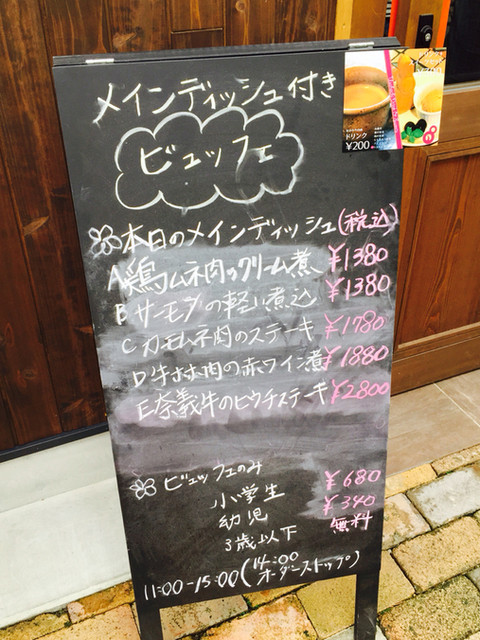 メインディッシュ付き
ビュッフェ
ドリンク
¥200
本日のメインディッシュ(税込)
A 鶏ムネ肉のクリーム煮 ¥1380
B サーモンの軽い煮込 ¥1380
C カモムネ肉のステーキ ¥1780
D 牛ホホ肉の赤ワイン煮 ¥1880
E 奈義牛のヒウチステーキ ¥2800
ビュッフェのみ
小学生 ¥680
幼児 ¥340
3歳以下 無料
11:00-15:00(14:00オーダーストップ)